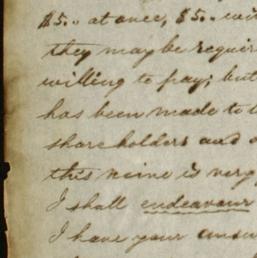 $5.. at once, $5.. wit
they may be requir
willing to pay; but
has been made to t
shareholders and o
this mine is very
I shall endeavour
I have your answ